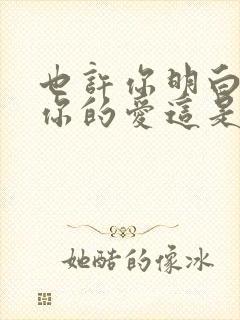 也許你明白
你的愛這是
她酷的像冰